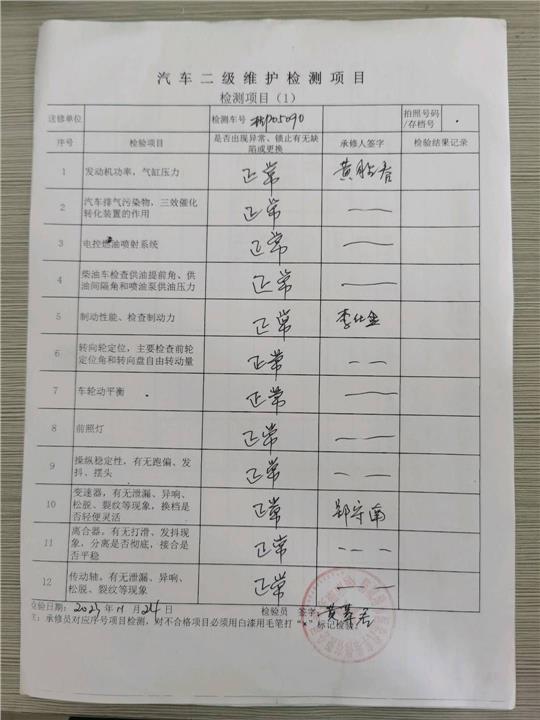 汽车二级维护检测项目
检测项目（1）
送修单位 检测车号 05090 拍照号码/存档号
序号 检验项目 是否出现异常、锁止有无缺陷或更换 承修人签字 检验结果记录
1 发动机功率，气缸压力 正常 黄
2 汽车排气污染物，三效催化转化装置的作用 正常 —
3 电控燃油喷射系统 正常 —
4 柴油车检查供油提前角、供油间隔角和喷油泵供油压力 正常 —
5 制动性能、检查制动力 正常 李仕
6 转向轮定位，主要检查前轮定位角和转向盘自由转动量 正常 — —
7 车轮动平衡 正常 — —
8 前照灯 正常 — —
9 操纵稳定性，有无跑偏、发抖、摆头 正常 — —
10 变速器，有无泄漏、异响、松脱、裂纹等现象，换档是否轻便灵活 正常 郑守南
11 离合器，有无打滑、发抖现象，分离是否彻底，接合是否平稳 正常 — —
12 传动轴，有无泄漏、异响、松脱、裂纹等现象 正常 — —
检验日期：2023年11月24日 检验员 签字：黄
：承修员对应序号项目检测，对不合格项目必须用白漆用毛笔打“×”标记检验。